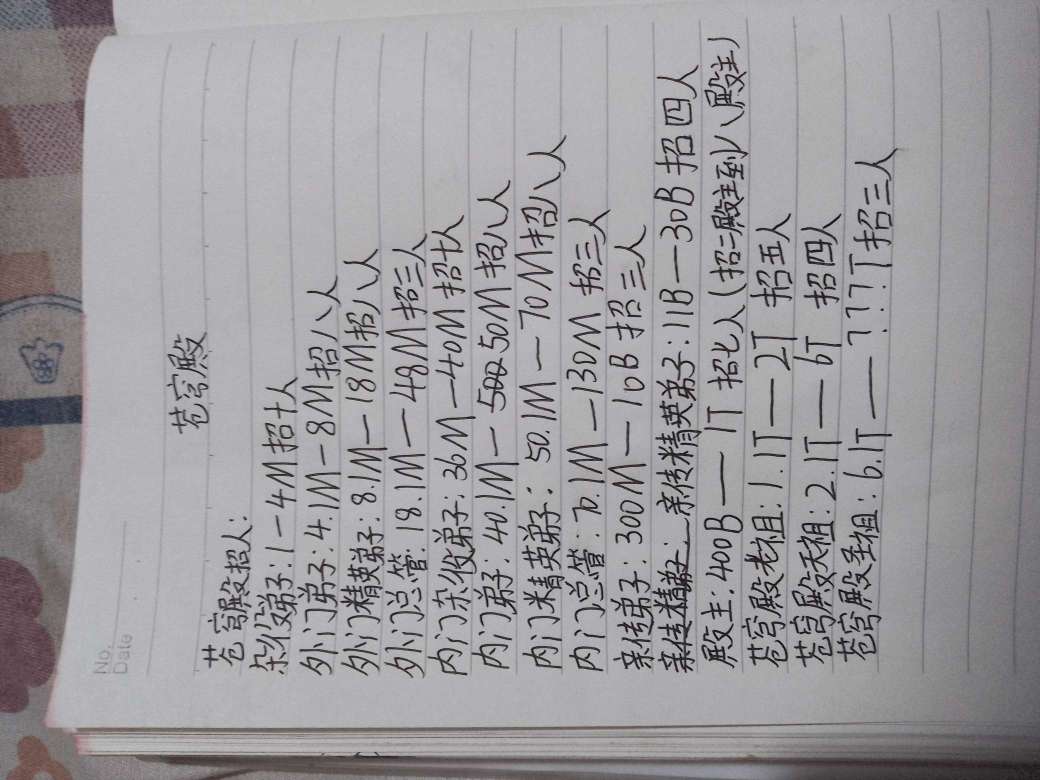 No.
Date
苍穹殿
苍穹殿招人：
杂役弟子：1－4M招十人
外门弟子：4.1M－8M招八人
外门精英弟子：8.1M－18M招八人
外门总管：18.1M－48M招三人
内门杂役弟子：36M—40M招十人
内门弟子：40.1M－50M招八人
内门精英弟子：50.1M－70M招八人
内门总管：70.1M－130M招三人
亲传弟子：300M－10B招三人
亲传精英弟子：11B－30B招四人
殿主：400B－1T招七人（招二殿主到八殿主）
苍穹殿老祖：1.1T－2T招五人
苍穹殿天祖：2.1T－6T招四人
苍穹殿圣祖：6.1T－???T招三人